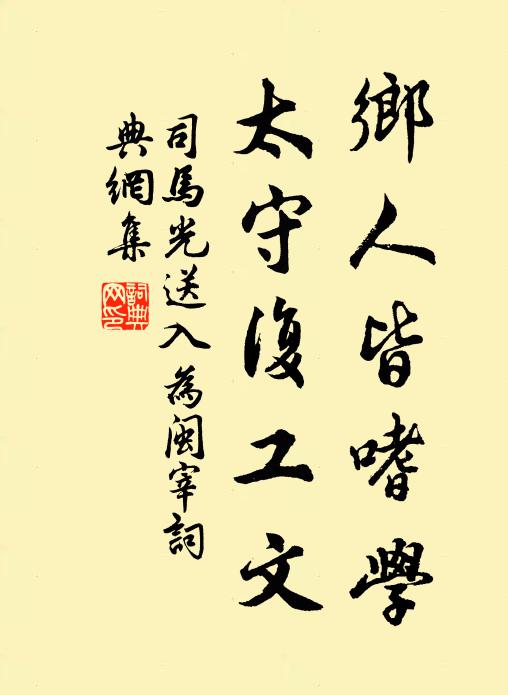 鄉人皆嗜學
太守復工文
司馬光送入為閩宰詞
典網集
詞典网印